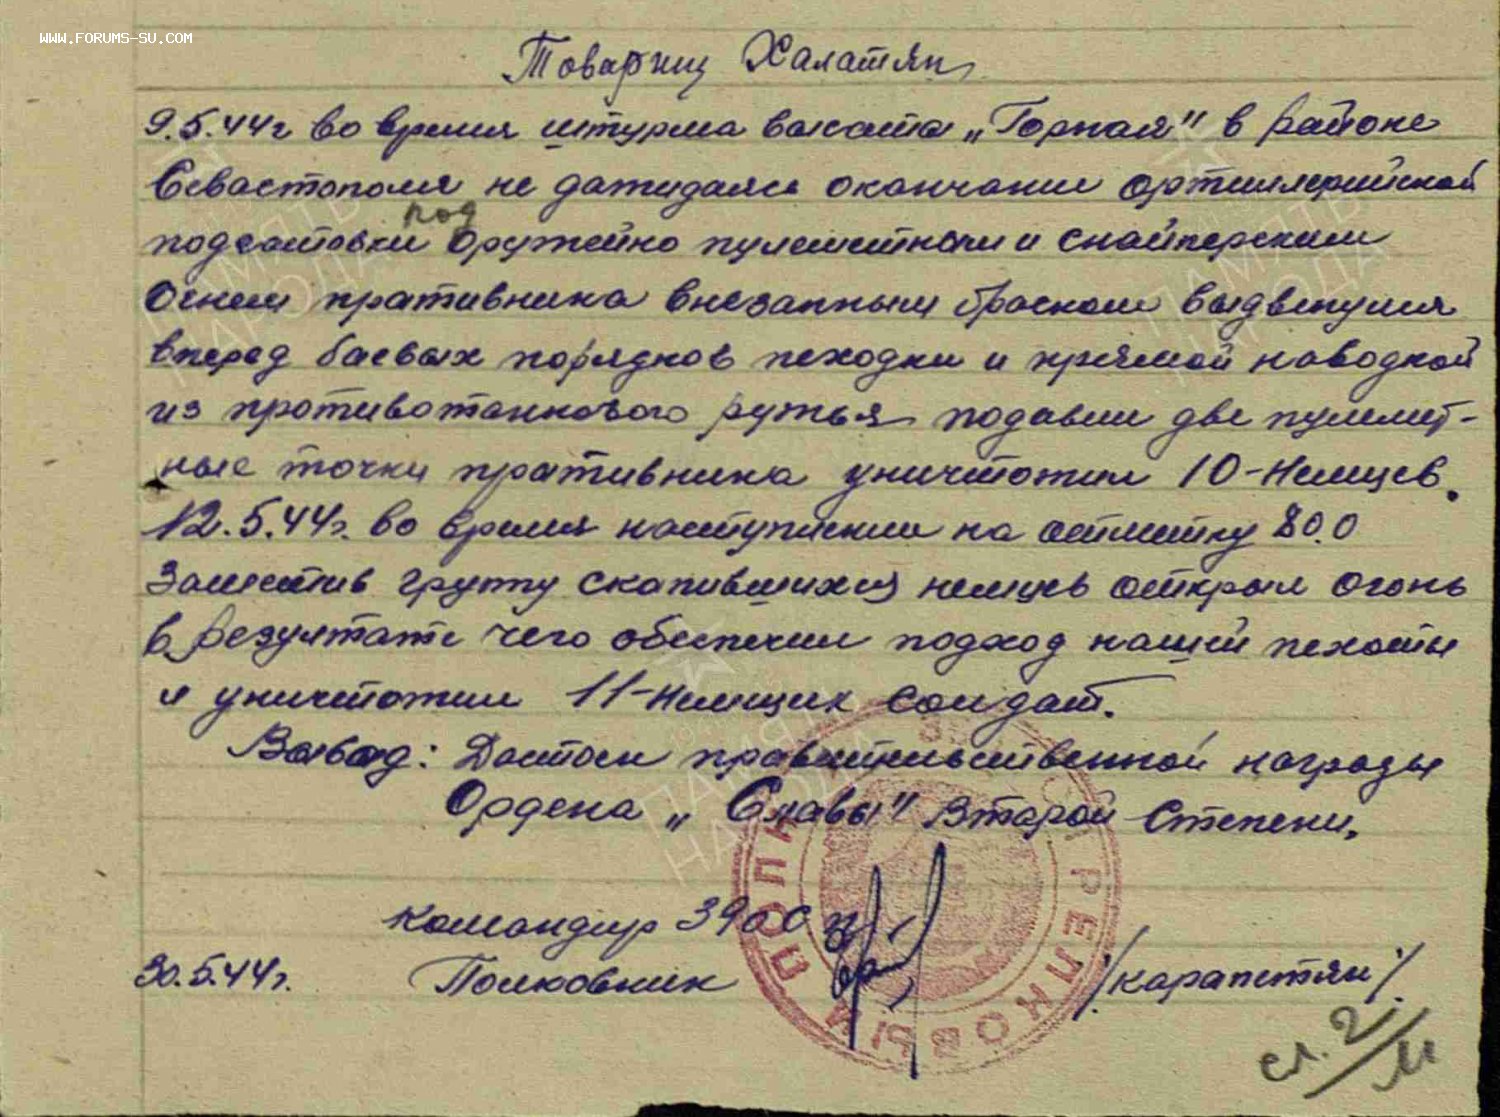 WWW.FORUMS-SU.COM
Товарищ Халатян
9.5.44г во время штурма высота „Горная" в районе
Севастополя не дажидаясь окончании артиллерийской
под
подготовки оружейно пулеметным и снайперским
огнем пративника внезапным браском выдвенулся
вперед баевых порядков пеходки и прямой наводкой
из противотанкового ружья подавил две пулемет-
ные точки пративника уничтожил 10-Немцев.
12.5.44г. во время наступлении на отметку 80.0
Заметив группу скапившихся немцев открыл огонь
в резултате чего обеспечил подход нашей пехоты
и уничтожил 11-Немцик Солдат.
Вывод: Достоен правительственной награды
Ордена „Славы" Второй Степени.
Командир 390 С П
30.5.44г. Полковник /Карапетян/
СТРЕЛКОВЫЙ ПОЛК
ПАМЯТЬ
НАРОДА
сл. 2/м